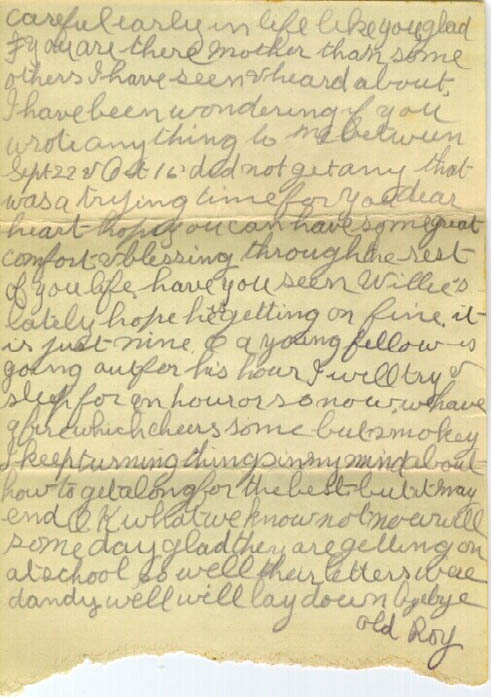 careful early in life like you glad
if you are there mother than some
others I have seen & heard about.
I have been wondering if you
wrote anything to me between
Sept 22 & Oct 16 did not get any that
was a trying time for you dear
heart hope you can have some great
comfort & blessing through the rest
of you life, have you seen Willie's
lately hope he getting on fine, it
is just nine & a young fellow is
going out for his hour I will try &
sleep for an hour or so now, we have
a fire which cheers some but smokey
I keep turning things in my mind about
how to get along for the best but it may
end O.K what we know not now will
some day glad they are getting on
at school so well their letters were
dandy, well will lay down bye bye
old Roy